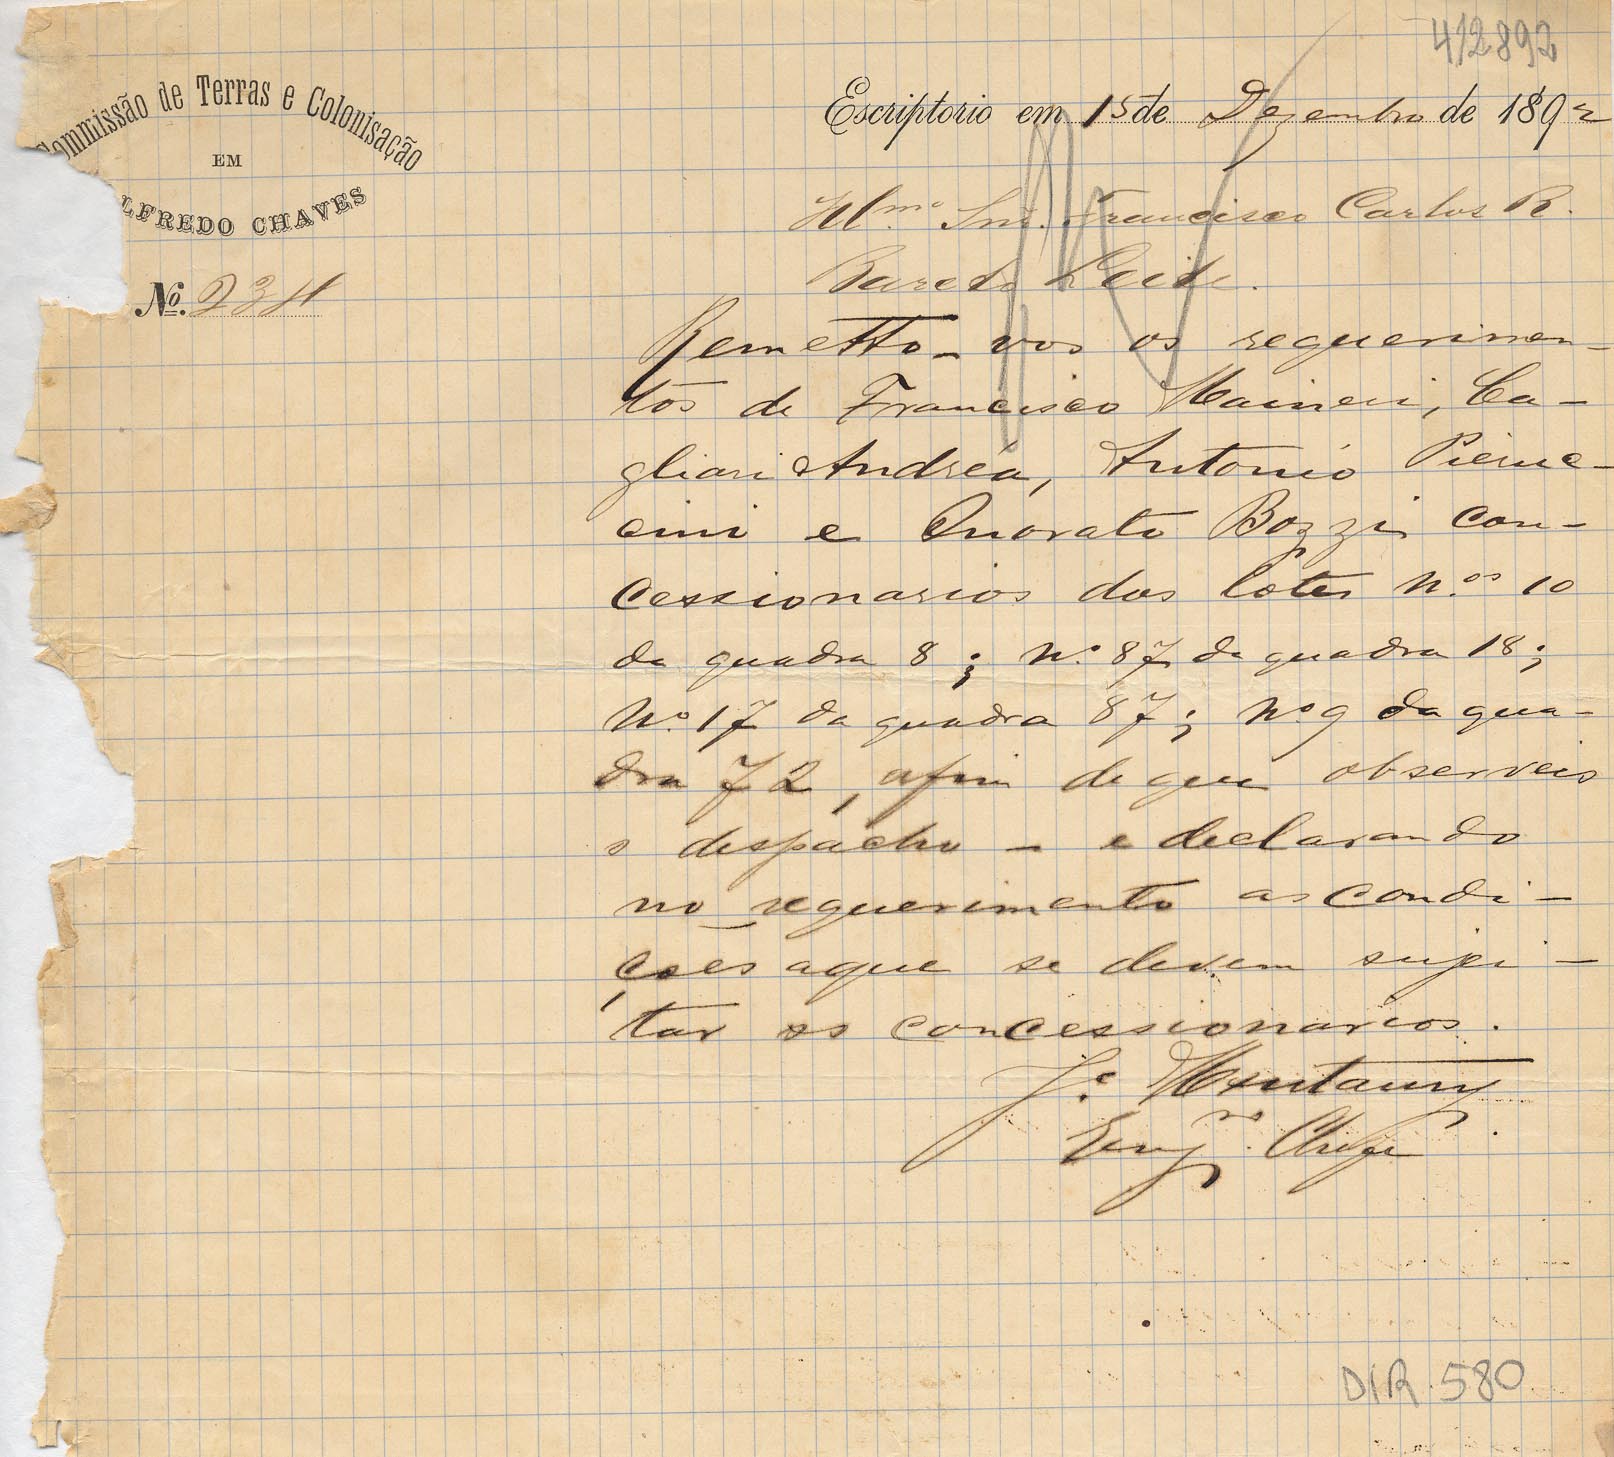 412892
Commissão de Terras e Colonisação
EM
LFREDO CHAVES
Escriptorio em 15 de Dezembro de 1892
Nº. 234
Illmo. Snr. Francisco Carlos R.
Leite.
Remetto-vos os requerimen-
tos de Francisco Maineri, Ca-
gliari Andréa, Antonio Pieruc-
cini e Onorato Bozzi con-
cessionarios dos lotes N.os 10
da quadra 8; Nº 87 da quadra 18;
Nº 17 da quadra 87; Nº 9 da qua-
dra 72, afim de que observeis
o despacho - e declarando
no requerimento as condi-
ções a que se devem sujei-
tar os concessionarios.
Je. Montaury
Engro. Chefe
DIR. 580